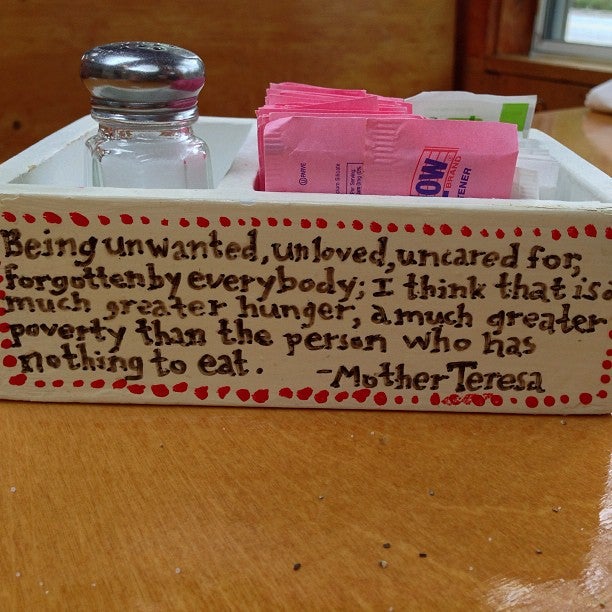 OW
BRAND
ENER
Being unwanted, unloved, uncared for,
forgotten by everybody; I think that is a
much greater hunger, a much greater
poverty than the person who has
nothing to eat.
-Mother Teresa